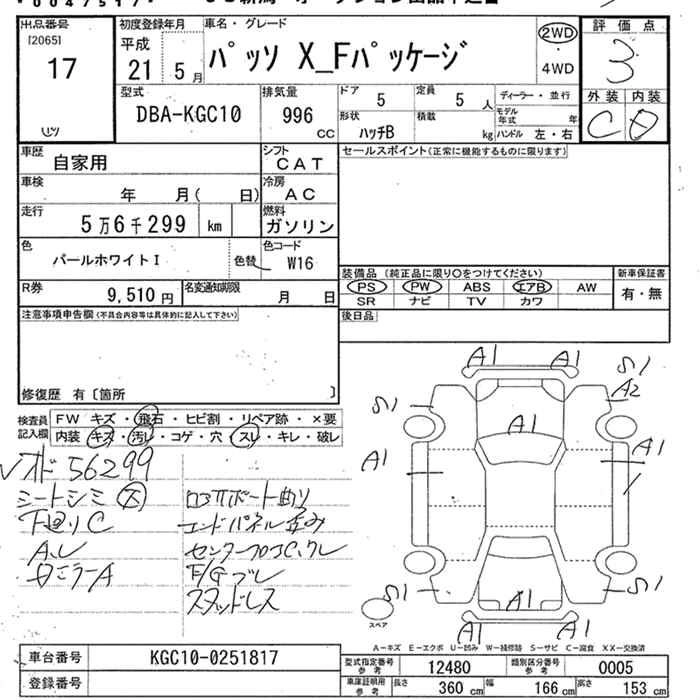 出品番号
[2065]
17
初度登録年月
平成
21 5 月
車名・グレード
パッソ X_Fパッケージ
2WD
・
4WD
評価点
3
外装 内装
C D
型式
DBA-KGC10
排気量
996
cc
ドア
5
定員
5 人
形状
ハッチB
積載
kg
ディーラー・並行
モデル年式 年
ハンドル 左・右
車歴
自家用
シフト
CAT
セールスポイント(正常に機能するものに限ります)
車検
年 月( 日)
冷房
AC
走行
5万6千299 km
燃料
ガソリン
色
パールホワイトI
色替
色コード
W16
装備品 (純正品に限り○をつけてください)
PS PW ABS エアB AW
SR ナビ TV カワ
新車保証書
有・無
R券
9,510 円
名変通知期限
月 日
後日品
注意事項申告欄(不具合内容等は具体的に記入して下さい)
修復歴 有〔箇所 〕
検査員記入欄
FW キズ・飛石・ヒビ割・リペア跡・×要
内装 キズ・汚レ・コゲ・穴・スレ・キレ・破レ
56299
シートシミ 大
下廻りC
エンドパネル歪み
スタッドレス
A1 A1
S1 S1
A2
A1
A1 A1
S1 S1
A1
A1 A1
スペア
A－キズ E－エクボ U－凹み W－補修跡 S－サビ C－腐食 XX－交換済
車台番号
KGC10-0251817
登録番号
型式指定番号 参考
12480
類別区分番号 参考
0005
車庫証明用 参考
長さ 360 cm
幅 166 cm
高さ 153 cm